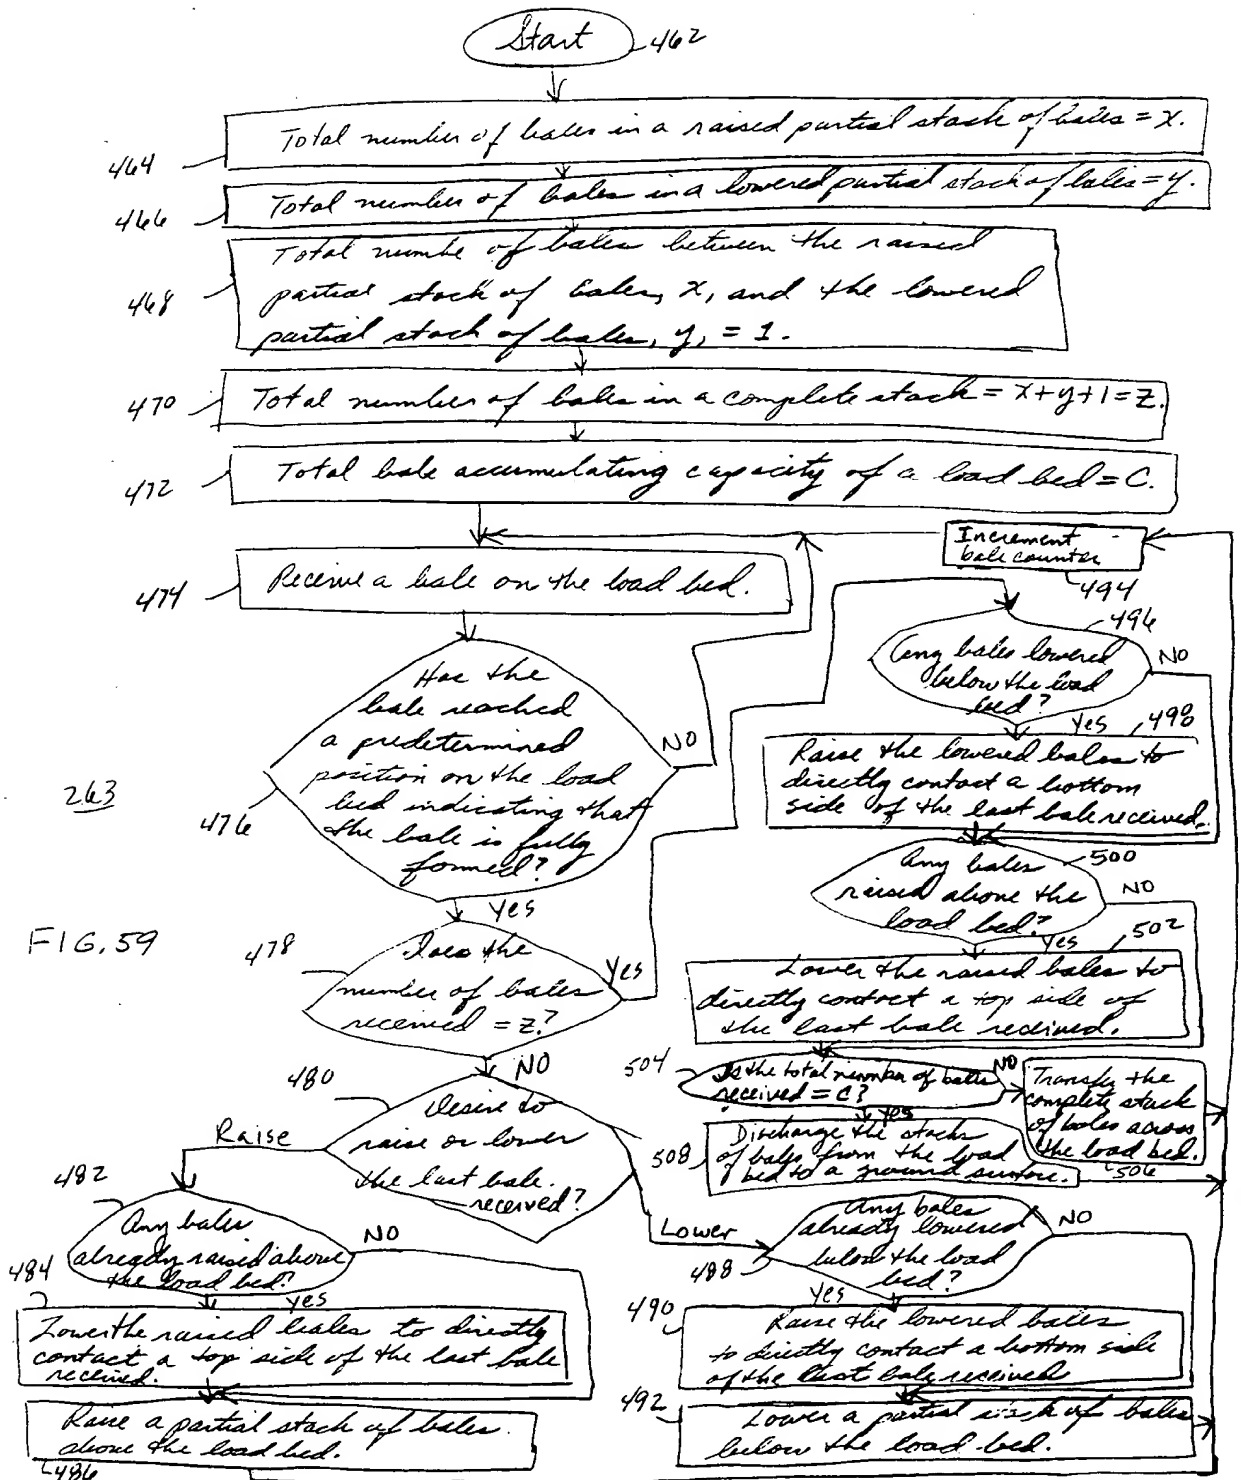 Start
462
Total number of bales in a raised partial stack of bales = x.
464
Total number of bales in a lowered partial stack of bales = y.
466
Total numbe of bales between the raised
partial stack of bales, x, and the lowered
partial stack of bales, y, = 1.
468
Total number of bales in a complete stack = x+y+1=z.
470
Total bale accumulating capacity of a load bed = C.
472
Receive a bale on the load bed.
474
Has the
bale reached
a predetermined
position on the load
bed indicating that
the bale is fully
formed?
476
NO
Yes
263
FIG. 59
Does the
number of bales
received = z?
478
Yes
NO
Desire to
raise or lower
the last bale
received?
480
Raise
Lower
Any bales
already raised above
the load bed?
482
NO
Yes
Lower the raised bales to directly
contact a top side of the last bale
received.
484
Raise a partial stack of bales
above the load bed.
486
Any bales
already lowered
below the load
bed?
488
NO
Yes
Raise the lowered bales
to directly contact a bottom side
of the last bale received
490
Lower a partial stack of bales
below the load bed.
492
Increment
bale counter
494
Any bales lowered
below the load
bed?
496
NO
Yes
Raise the lowered bales to
directly contact a bottom
side of the last bale received.
498
Any bales
raised above the
load bed?
500
NO
Yes
Lower the raised bales to
directly contact a top side of
the last bale received.
502
Is the total number of bales
received = C?
504
NO
Yes
Transfer the
complete stack
of bales across
the load bed.
506
Discharge the stacks
of bales from the load
bed to a ground surface.
508